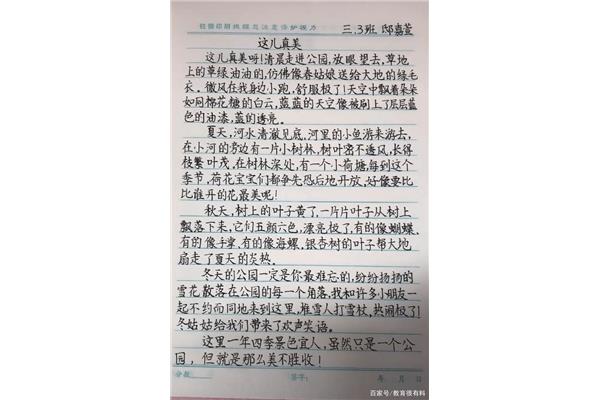 三.3班 邸嘉萱
这儿真美
这儿真美呀!清晨走进公园,放眼望去,草地
上的草绿油油的,仿佛像春姑娘送给大地的绿毛
衣。微风在我身边小跑,舒服极了!天空中飘着朵朵
如同棉花糖的白云,蓝蓝的天空像被刷上了层层蓝
色的油漆,蓝的透亮。
夏天,河水清澈见底,河里的小鱼游来游去,
在小河的旁边有一片小树林,树叶密不透风,长得
枝繁叶茂,在树林深处,有一个小荷塘,每到这个
季节,荷花宝宝们都争先恐后地开放,好像要比
比谁开的花最美呢!
秋天,树上的叶子黄了,一片片叶子从树上
飘落下来,它们五颜六色,漂亮极了,有的像蝴蝶、
有的像手掌,有的像海螺,银杏树的叶子帮大地
扇走了夏天的炎热。
冬天的公园一定是你最难忘的,纷纷扬扬的
雪花散落在公园的每一个角落,我和许多小朋友一
起不约而同地来到这里,堆雪人打雪杖,热闹极了!
冬姑姑给我们带来了欢声笑语。
这里一年四季景色宜人,虽然只是一个公
园,但就是那么美不胜收!
分数 签字: 年 月 日
百家号/教育很有料